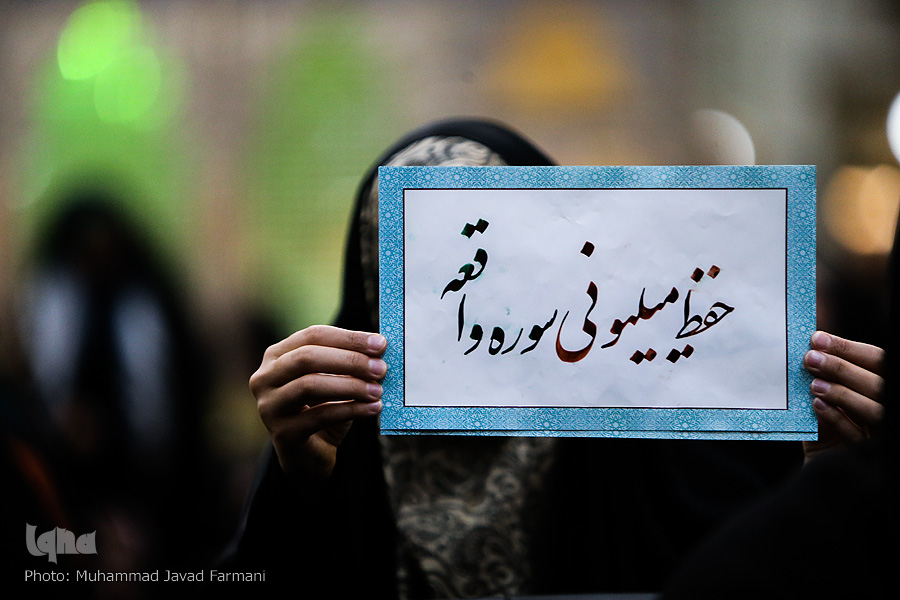 حفظ میلیونی سوره واقعه
Iqna
Photo: Muhammad Javad Farmani